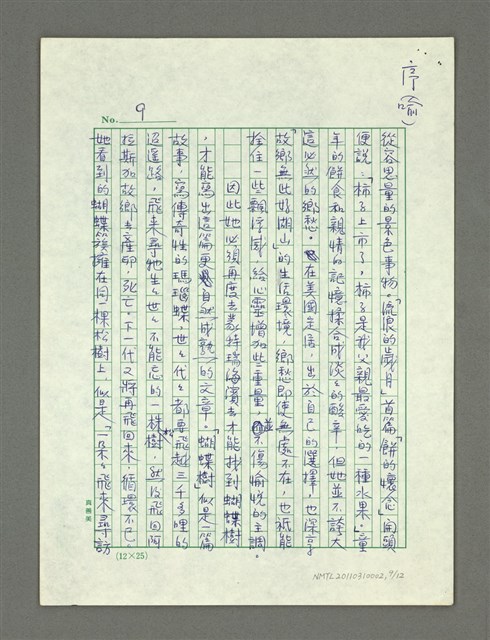 序(12之俞)
No. 9
從容思量的景色事物。「流浪的歲月」首篇「餅的懷念」開頭
便說：「柿子上市了，柿子是我父親最愛吃的一種水果。」童
年的餅食和親情的記憶揉合成淡淡的酸辛，但她並不誇大
這必然的鄉愁。在美國定居，出於自己的選擇，也深享
「故鄉無此好湖山」的生活環境，鄉愁即使無處不在，也祇能
拴住一些飄浮感，給心靈增加些重量，並不傷愉悅的主調。
因此她必須再度去蒙特瑞海濱去才能找到蝴蝶樹
，才能寫出這篇更自然成熟的文章。「蝴蝶樹」似是一篇
故事，寫傳奇性的瑪瑙蝶，世世代代都要飛越三千多哩的
迢遙路，飛來尋牠生生世世不能忘的一株松樹，然後飛回阿
拉斯加故鄉去產卵，死亡。下一代又將再飛回來，循環不已。
她看到的蝴蝶簇擁在同一棵松樹上，似是「一朵朵飛來尋訪
真善美
(12×25)
NMTL20110310002, 9/12